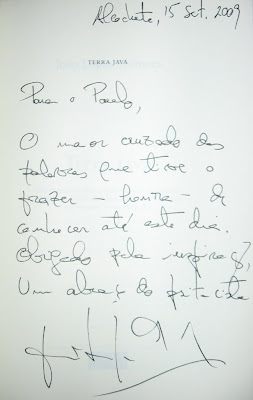 Alcochete, 15 Set. 2009
TERRA JAVA
Para o Paulo,
O maior cruzado das
palavras que tive o
prazer – honra – de
conhecer até este dia.
Obrigado pela inspiração,
Um abraço do